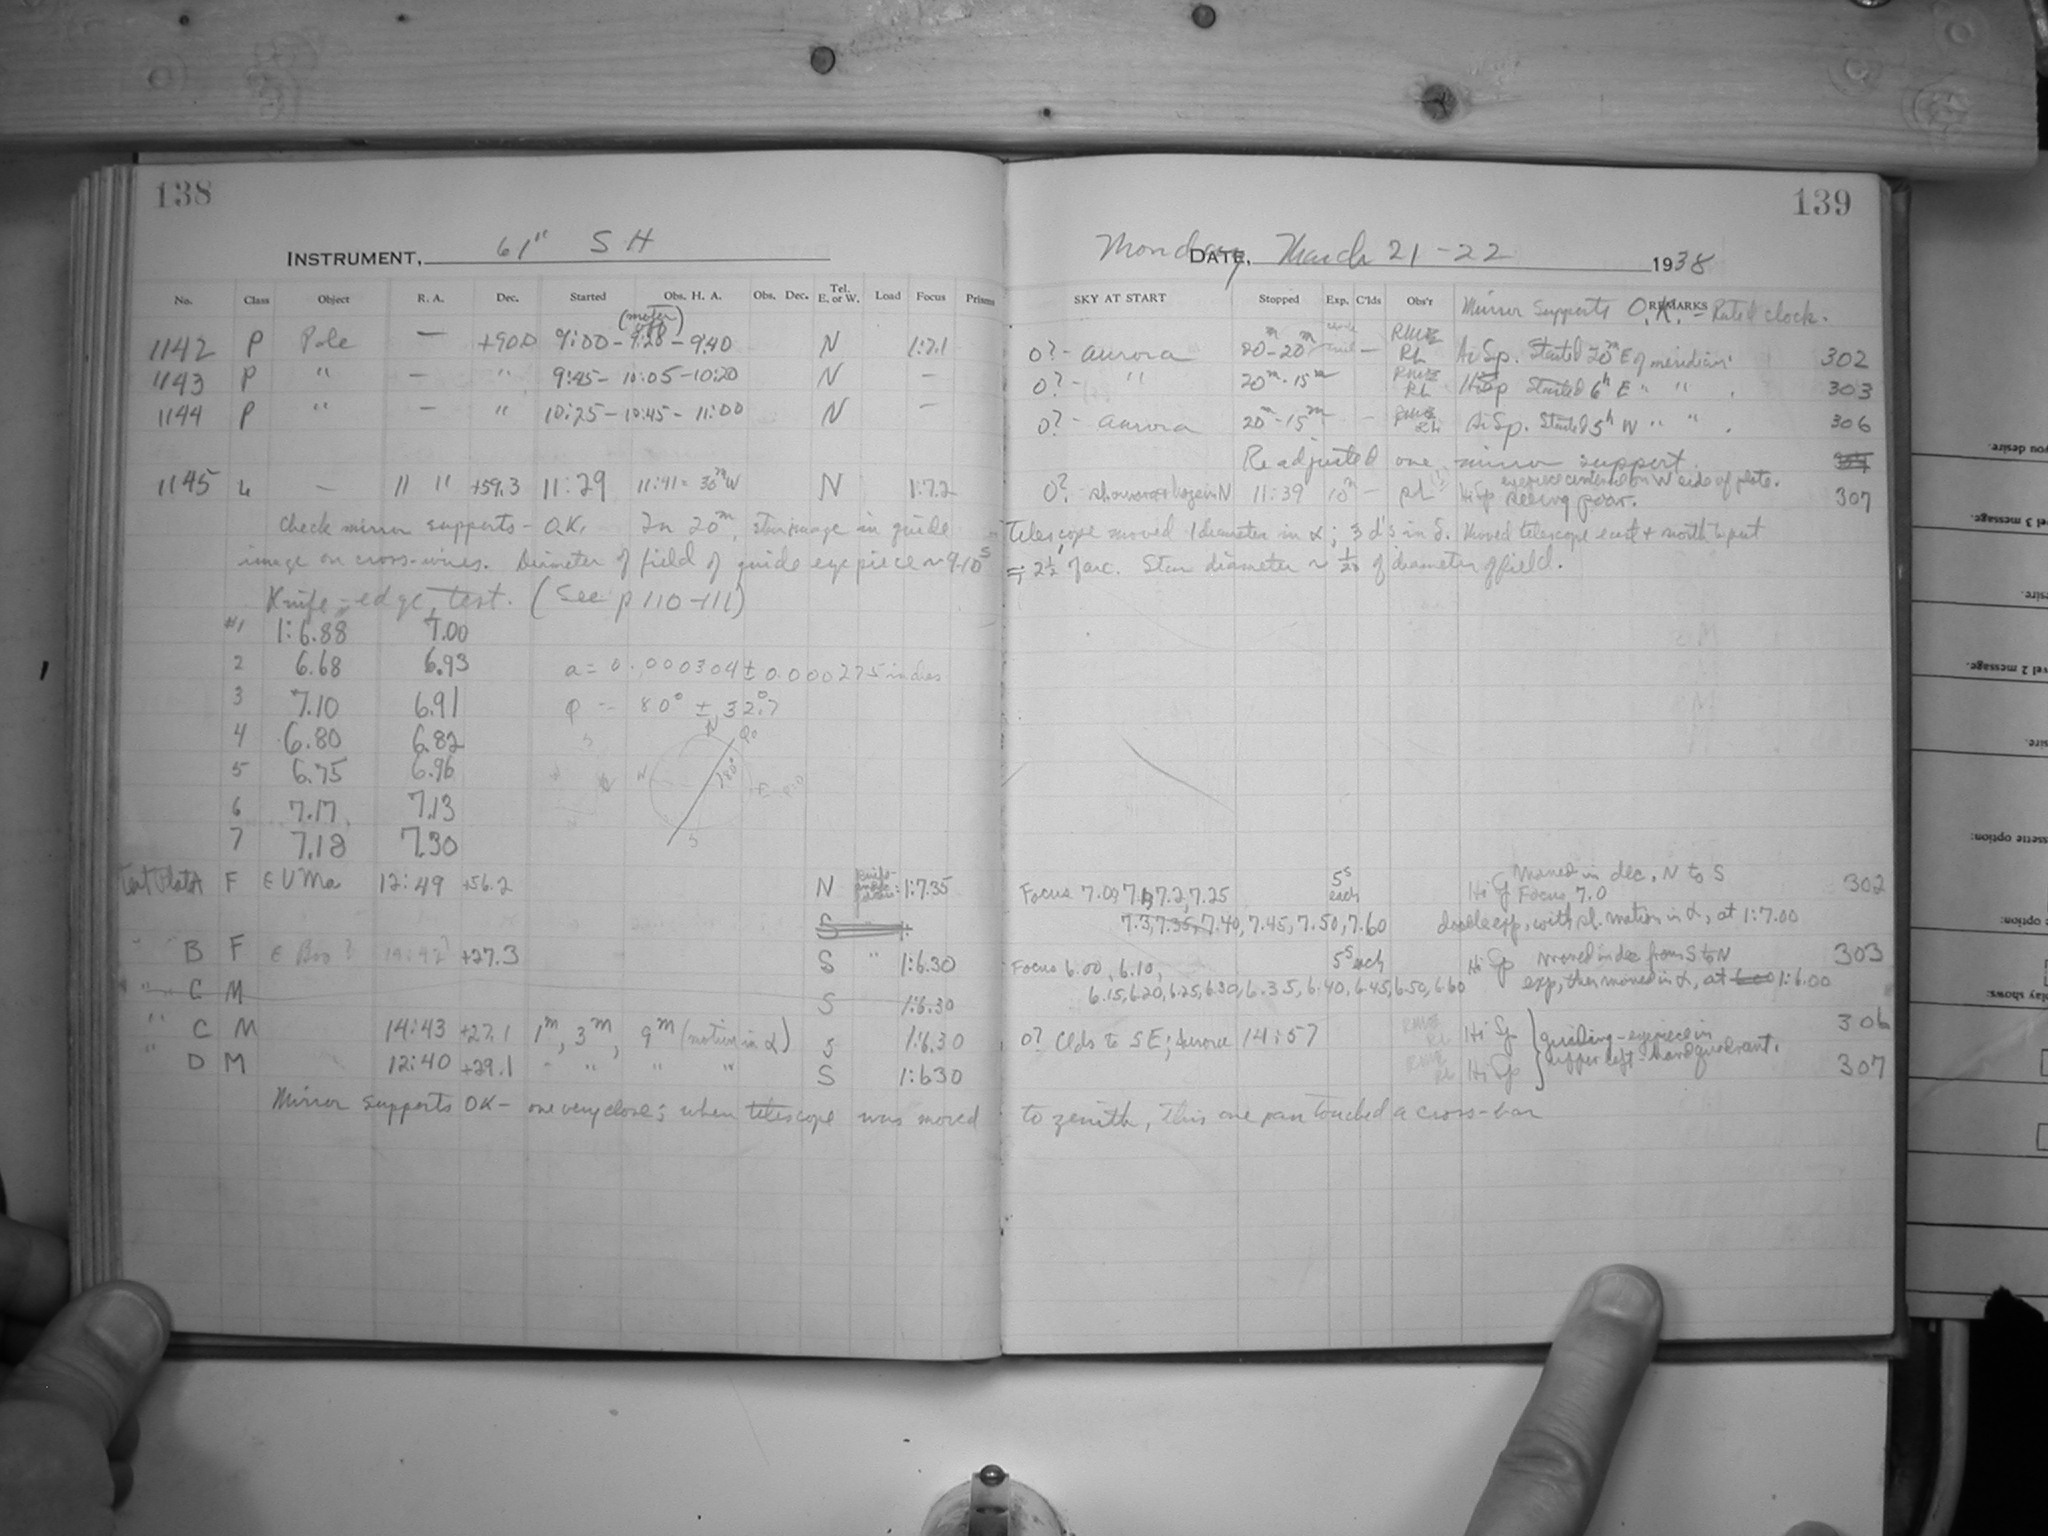 138
INSTRUMENT, 61" S H
No. Class Object R. A. Dec. Started Obs. H. A. Obs. Dec. Tel. E. or W. Load Focus Prisms
1142 P Pole — +90.0 9:00 - 9:20 - 9:40 N 1:7.1
1143 P " — " 9:45 - 10:05 - 10:20 N —
1144 P " — " 10:25 - 10:45 - 11:00 N —
1145 — 11 11 +59.3 11:29 11:41 = 30ᵐW N 1:7.2
Check mirror supports - O.K. In 20ᵐ, star image in guide
image on cross-wires. Diameter of field of guide eyepiece ~ 9-10ˢ
Knife-edge test. (See p 110-111)
#1 1:6.88 7.00
2 6.68 6.93 a = 0.000304 ± 0.000275 inches
3 7.10 6.91 φ = 80° ± 32.°7
4 6.80 6.82
5 6.75 6.96
6 7.17 7.13
7 7.18 7.30
N
80°
S
Test Plate A F ε UMa 12:49 +56.2 N 1:7.35
S
B F ε Boo ? 14:42? +27.3 S " 1:6.30
" " C M S 1:6.30
" C M 14:43 +27.1 1ᵐ, 3ᵐ, 9ᵐ (motion in α) S 1:6.30
" D M 12:40 +29.1 " " " " S 1:6.30
Mirror supports OK - one very close; when telescope was moved
139
Monday DATE, March 21-22 1938
SKY AT START Stopped Exp. C'lds Obs'r REMARKS Mirror Supports O.K. - Rated clock.
0? - aurora 20ᵐ-20ᵐ — RL Started 20ᵐ E of meridian. 302
0? - " 20ᵐ-15ᵐ RL Started 6ʰ E " " . 303
0? - aurora 20ᵐ-15ᵐ — Started 5ʰ W " " . 306
Readjusted one mirror support.
eyepiece centered on W side of plate.
0? 11:39 10ᵐ — RL Hi Sp seeing poor. 307
Telescope moved 1 diameter in α; 3 d's in δ. Moved telescope east + north to put
= 2½' of arc. Star diameter ~ 1/20 of diameter of field.
Focus 7.0, 7.1, 7.2, 7.25 5ˢ each Hi Sp Moved in dec. N to S Focus 7.0 302
7.3, 7.35, 7.40, 7.45, 7.50, 7.60 double exp, with sl. motion in α, at 1:7.00
Focus 6.00, 6.10, 5ˢ each Hi Sp moved in dec from S to N 303
6.15, 6.20, 6.25, 6.30, 6.35, 6.40, 6.45, 6.50, 6.60 exp, then moved in α, at 1:6.00
0? Clds to SE; Aurora 14:57 Hi Sp guiding-eyepiece in 306
Hi Sp upper left-hand quadrant. 307
to zenith, this one pan touched a cross-bar
you desire.
vel 3 message.
esire.
vel 2 message.
sire.
ssette option:
option:
play shows: